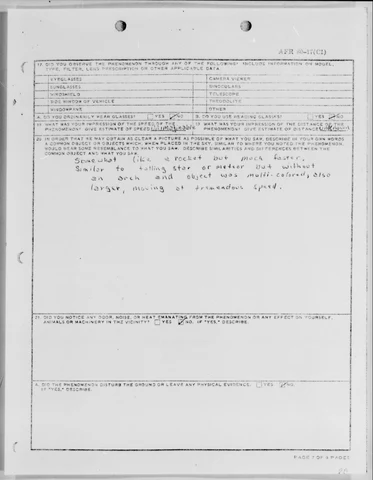 AFR 80-17(C1)
16. DID YOU OBSERVE THE PHENOMENON THROUGH ANY OF THE FOLLOWING? INCLUDE INFORMATION ON MODEL,
TYPE, FILTER, LENS PRESCRIPTION OR OTHER APPLICABLE DATA.
EYEGLASSES CAMERA VIEWER
SUNGLASSES BINOCULARS
WINDSHIELD TELESCOPE
SIDE WINDOW OF VEHICLE THEODOLITE
WINDOWPANE OTHER
A. DO YOU ORDINARILY WEAR GLASSES? YES NO B. DO YOU USE READING GLASSES? YES NO
WHAT WAS YOUR IMPRESSION OF THE SPEED OF THE WHAT WAS YOUR IMPRESSION OF THE DISTANCE OF THE
PHENOMENON? GIVE ESTIMATE OF SPEED PHENOMENON? GIVE ESTIMATE OF DISTANCE
20. IN ORDER THAT WE MAY OBTAIN AS CLEAR A PICTURE AS POSSIBLE OF WHAT YOU SAW, DESCRIBE IN YOUR OWN WORDS
A COMMON OBJECT OR OBJECTS WHICH, WHEN PLACED IN THE SKY, SIMILAR TO WHERE YOU NOTED THE PHENOMENON,
WOULD BEAR SOME RESEMBLANCE TO WHAT YOU SAW. DESCRIBE SIMILARITIES AND DIFFERENCES BETWEEN THE
COMMON OBJECT AND WHAT YOU SAW.
Somewhat like a rocket but much faster,
Similar to falling star or meteor but without
an arch and object was multi-colored, also
larger, moving at tremendous speed.
21. DID YOU NOTICE ANY ODOR, NOISE, OR HEAT EMANATING FROM THE PHENOMENON OR ANY EFFECT ON YOURSELF,
ANIMALS OR MACHINERY IN THE VICINITY? YES NO. IF "YES," DESCRIBE.
DID THE PHENOMENON DISTURB THE GROUND OR LEAVE ANY PHYSICAL EVIDENCE? YES NO
IF "YES," DESCRIBE.
PAGE OF PAGES